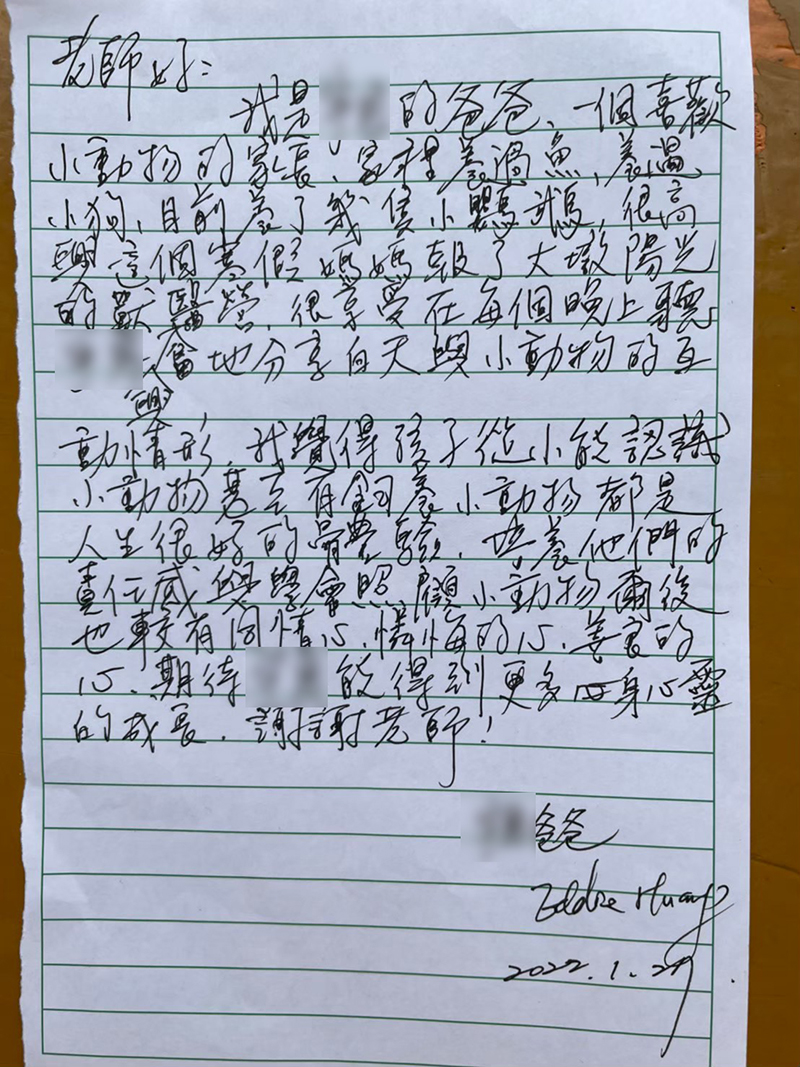 老師好：
我是 的爸爸、一個喜歡
小動物的家長、家裡養過魚、養過
小狗、目前養了幾隻小鸚鵡，很高
興這個寒假媽媽報了大墩陽光
的獸醫營，很享受在每個晚上聽
奮地分享白天與小動物的互
興
動情形，我覺得孩子從小能認識
小動物甚至有飼養小動物都是
人生很好的體驗、培養他們的
責任感與學會照顧小動物爾後
也較有同情心、憐憫的心、善良的
心、期待 能得到更多 身心靈
的成長、謝謝老師！
爸爸
Eddie Huang
2022.1.27